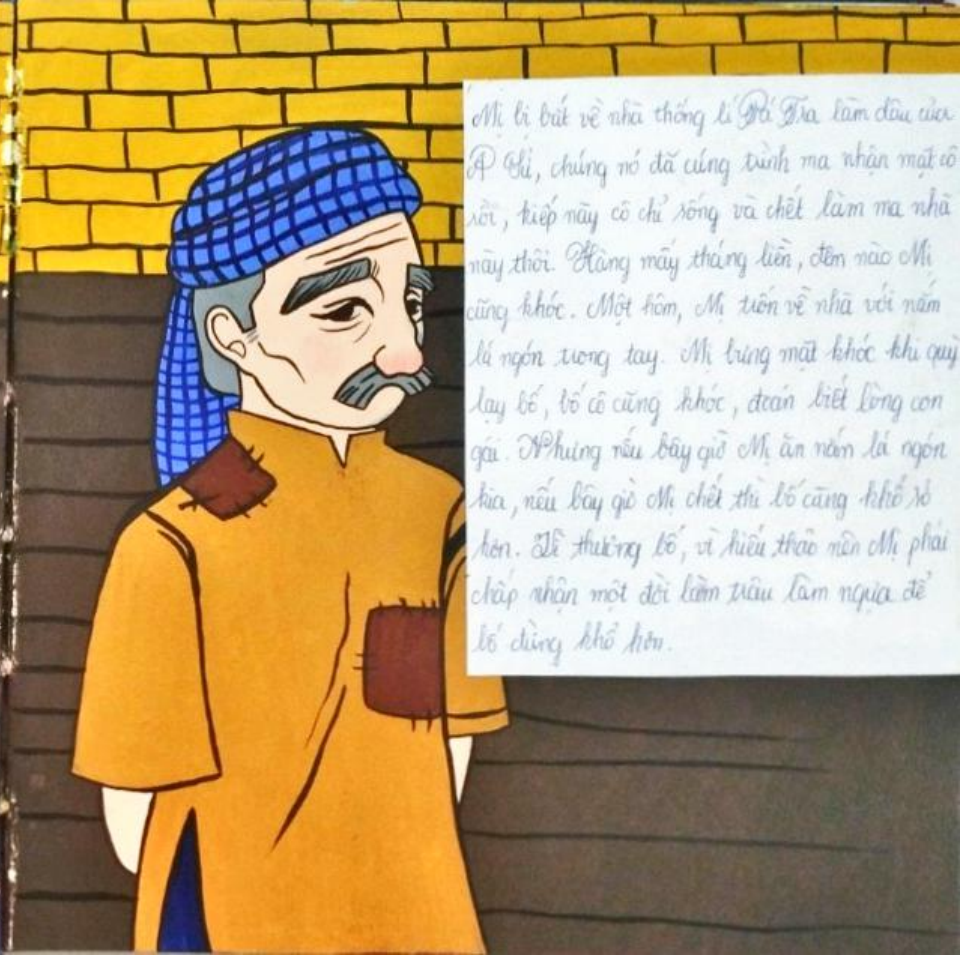 Mị bị bắt về nhà thống lí Pá Tra làm dâu của
A Sử, chúng nó đã cúng trình ma nhận mặt cô
rồi, kiếp này cô chỉ sống và chết làm ma nhà
này thôi. Hàng mấy tháng liền, đêm nào Mị
cũng khóc. Một hôm, Mị trốn về nhà với nắm
lá ngón trong tay. Mị bưng mặt khóc khi quỳ
lạy bố, bố cô cũng khóc, đoán biết lòng con
gái. Nhưng nếu bây giờ Mị ăn nắm lá ngón
kia, nếu bây giờ Mị chết thì bố càng khổ sở
hơn. Vì thương bố, vì hiếu thảo nên Mị phải
chấp nhận một đời làm trâu làm ngựa để
bố đừng khổ hơn.